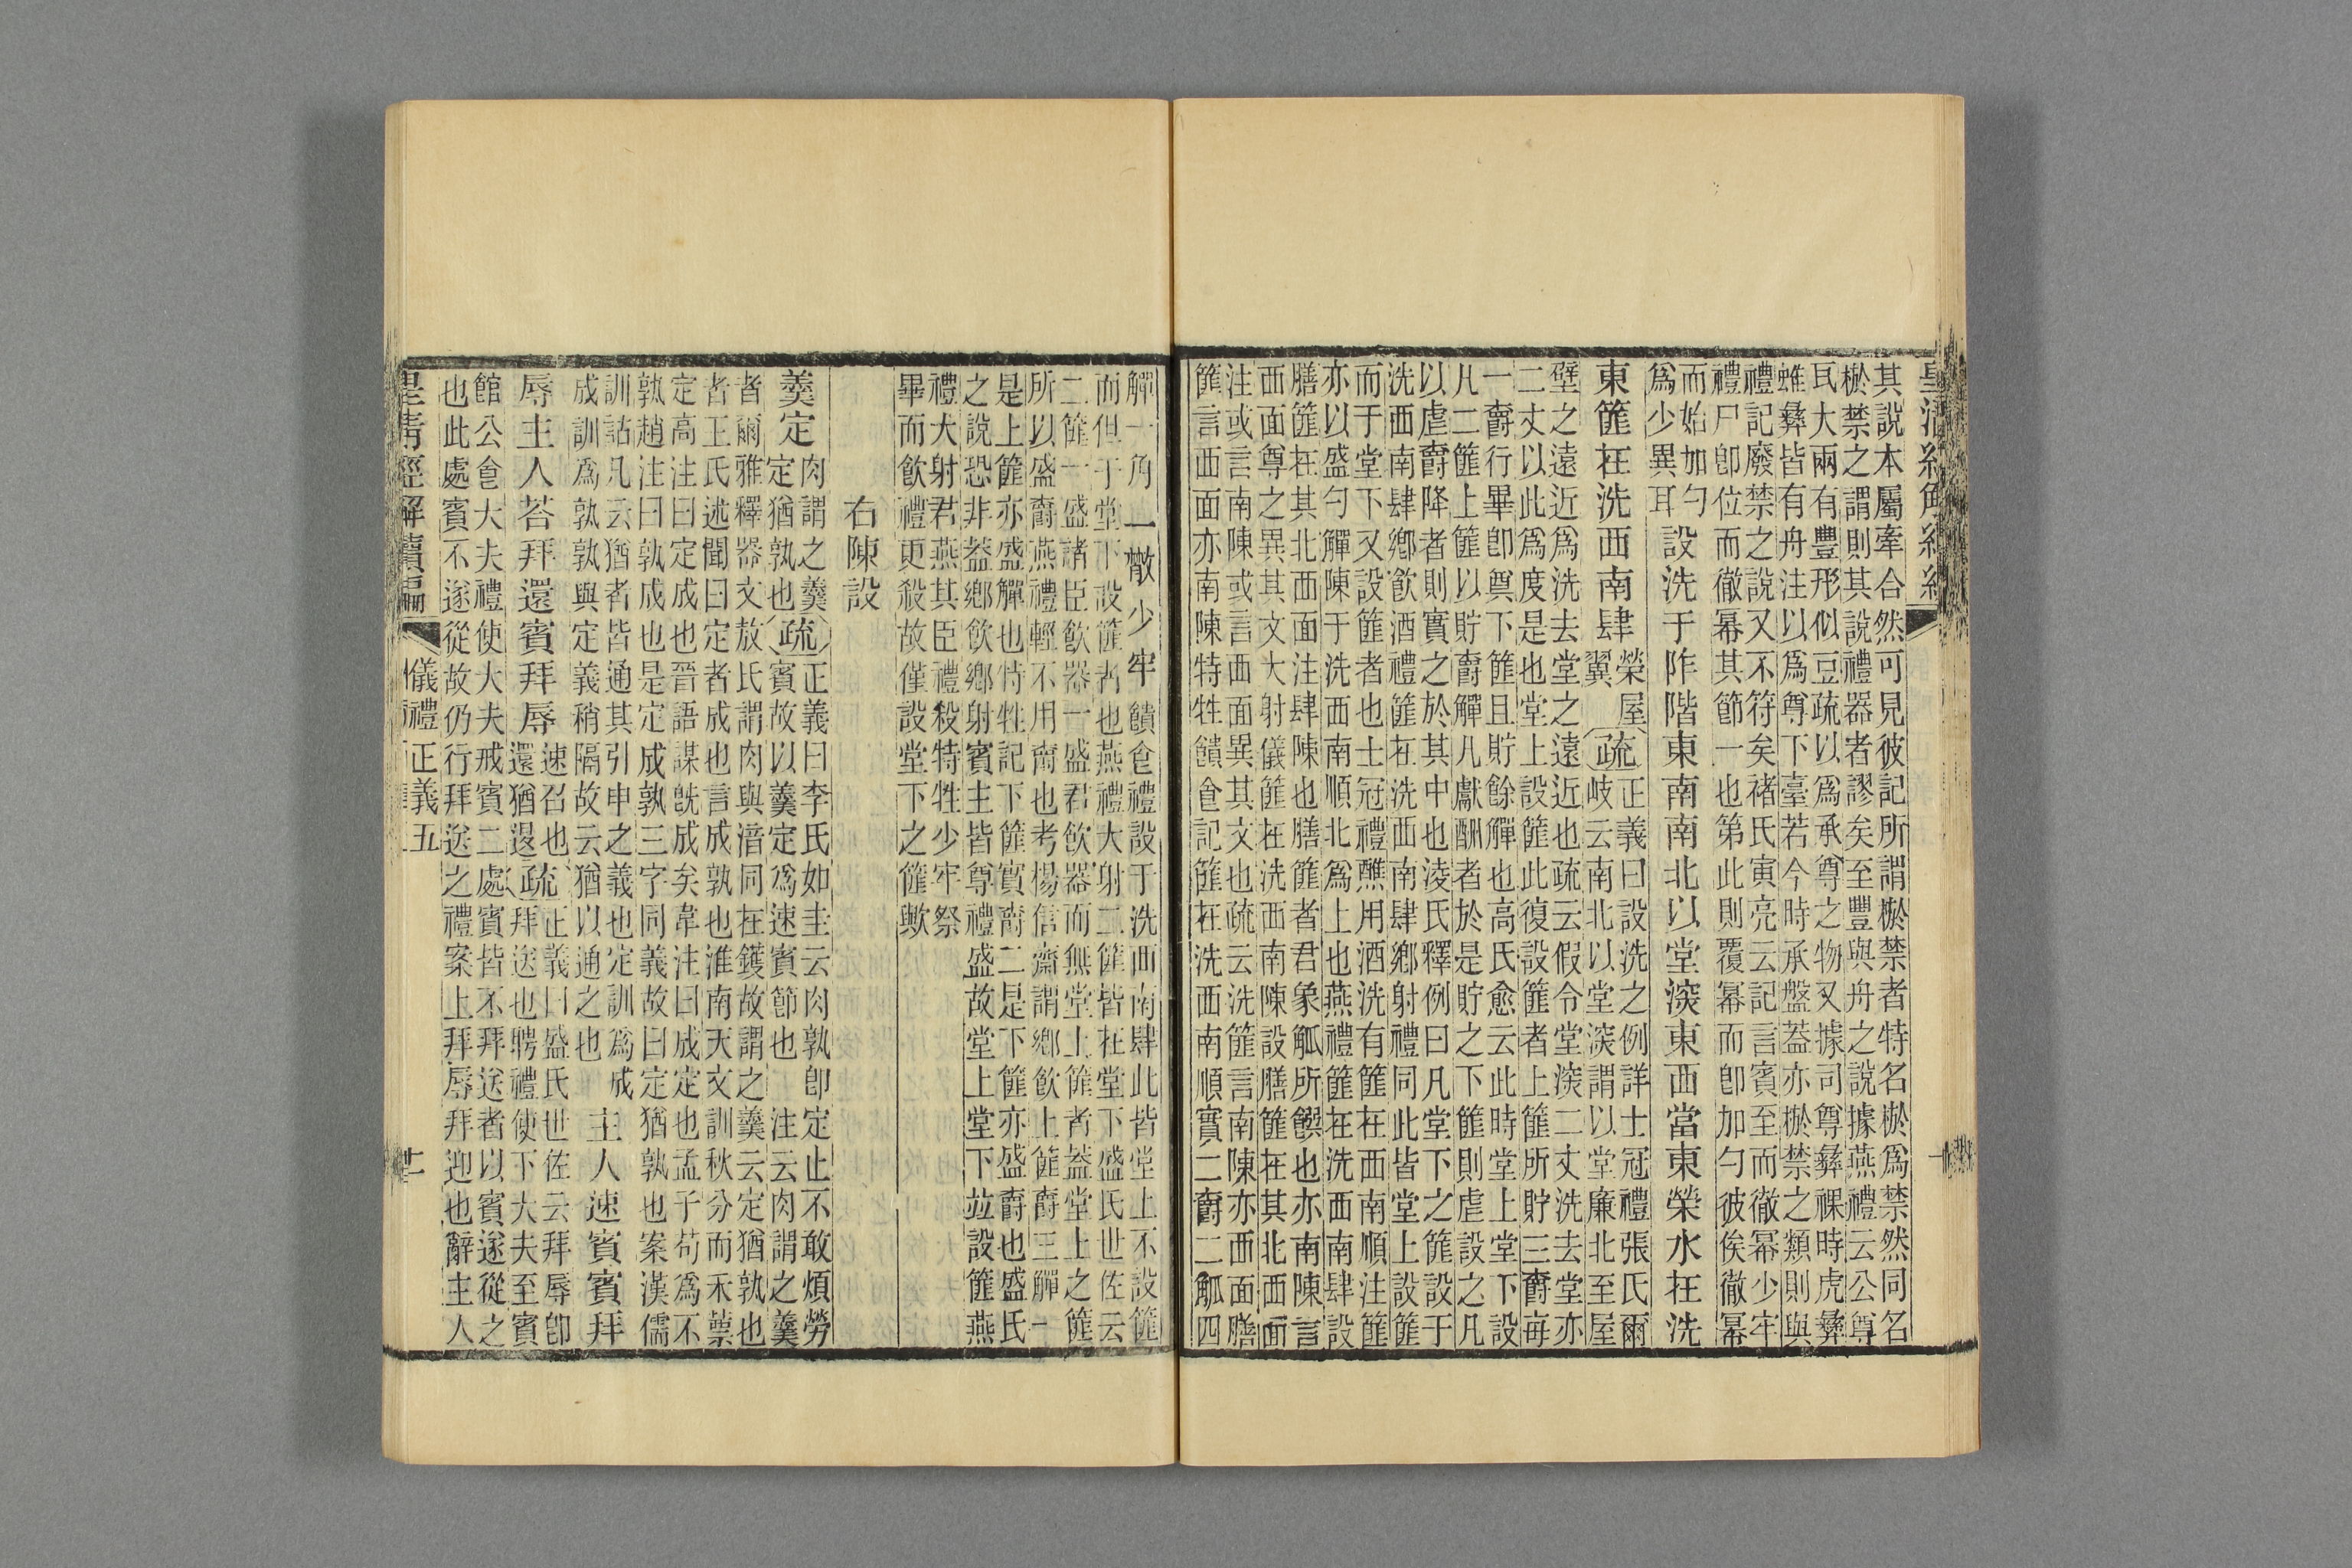 其說本屬牽合然可見彼記所謂棜禁者特名棜爲禁然同名
棜禁之謂則其說禮器者謬矣至豐與舟之說據燕禮云公尊
瓦大兩有豐形似豆疏以爲承尊之物又據司尊彝祼時虎彝
蜼彝皆有舟注以爲尊下臺若今時承盤葢亦棜禁之類則與
禮記廢禁之說又不符矣褚氏寅亮云記言賓至而徹幂少牢
禮尸卽位而徹幂其節一也第此則覆幂而卽加勺彼俟徹幂
而始加勺
爲少異耳
設洗于阼階東南南北以堂深東西當東榮水在洗
東篚在洗西南肆
榮屋
翼
疏
正義曰設洗之例詳士冠禮張氏爾
岐云南北以堂深謂以堂廉北至屋
壁之遠近爲洗去堂之遠近也疏云假令堂深二丈洗去堂亦
二丈以此爲度是也堂上設篚此復設篚者上篚所貯三爵每
一爵行畢卽奠下篚且貯餘觶也高氏愈云此時堂上堂下設
凡二篚上篚以貯爵觶凡獻酬者於是貯之下篚則虛設之凡
以虛爵降者則實之於其中也淩氏釋例曰凡堂下之篚設于
洗西南肆鄉飲酒禮篚在洗西南肆鄉射禮同此皆堂上設篚
而于堂下又設篚者也士冠禮醮用酒洗有篚在西南順注篚
亦以盛勺觶陳于洗西南順北爲上也燕禮篚在洗西南肆設
膳篚在其北西面注肆陳也膳篚者君象觚所饌也亦南陳言
西面尊之異其文大射儀篚在洗西南陳設膳篚在其北西面
注或言南陳或言西面異其文也疏云洗篚言南陳亦西面膳
篚言西面亦南陳特牲饋食記篚在洗西南順實二爵二觚四
觶一角一散少牢饋食禮設于洗西南肆此皆堂上不設篚
而但于堂下設篚者也燕禮大射二篚皆在堂下盛氏世佐云
二篚一盛諸臣飲器一盛君飲器而無堂上篚者葢堂上之篚
所以盛爵燕禮輕不用爵也考楊信齋謂鄉飲上篚爵三觶一
是上篚亦盛觶也特牲記下篚實爵二是下篚亦盛爵也盛氏
之說恐非葢鄉飲鄉射賓主皆尊禮盛故堂上堂下竝設篚燕
禮大射君燕其臣禮殺特牲少牢祭
畢而飲禮更殺故僅設堂下之篚歟
右陳設
羹定
肉謂之羹
定猶孰也
疏
正義曰李氏如圭云肉孰卽定止不敢煩勞
賓故以羹定爲速賓節也 注云肉謂之羹
者爾雅釋器文敖氏謂肉與湆同在鑊故謂之羹云定猶孰也
者王氏述聞曰定者成也言成孰也淮南天文訓秋分而禾蔈
定高注曰定成也晉語謀旣成矣韋注曰成定也孟子苟爲不
孰趙注曰孰成也是定成孰三字同義故曰定猶孰也案漢儒
訓詁凡云猶者皆通其引申之義也定訓爲成
成訓爲孰孰與定義稍隔故云猶以通之也
主人速賓賓拜
辱主人荅拜還賓拜辱
速召也
還猶退
疏
正義曰盛氏世佐云拜辱卽
拜送也聘禮使下大夫至賓
館公食大夫禮使大夫戒賓二處賓皆不拜送者以賓遂從之
也此處賓不遂從故仍行拜送之禮案上拜辱拜迎也辭主人
皇清經解續編
儀禮正義五